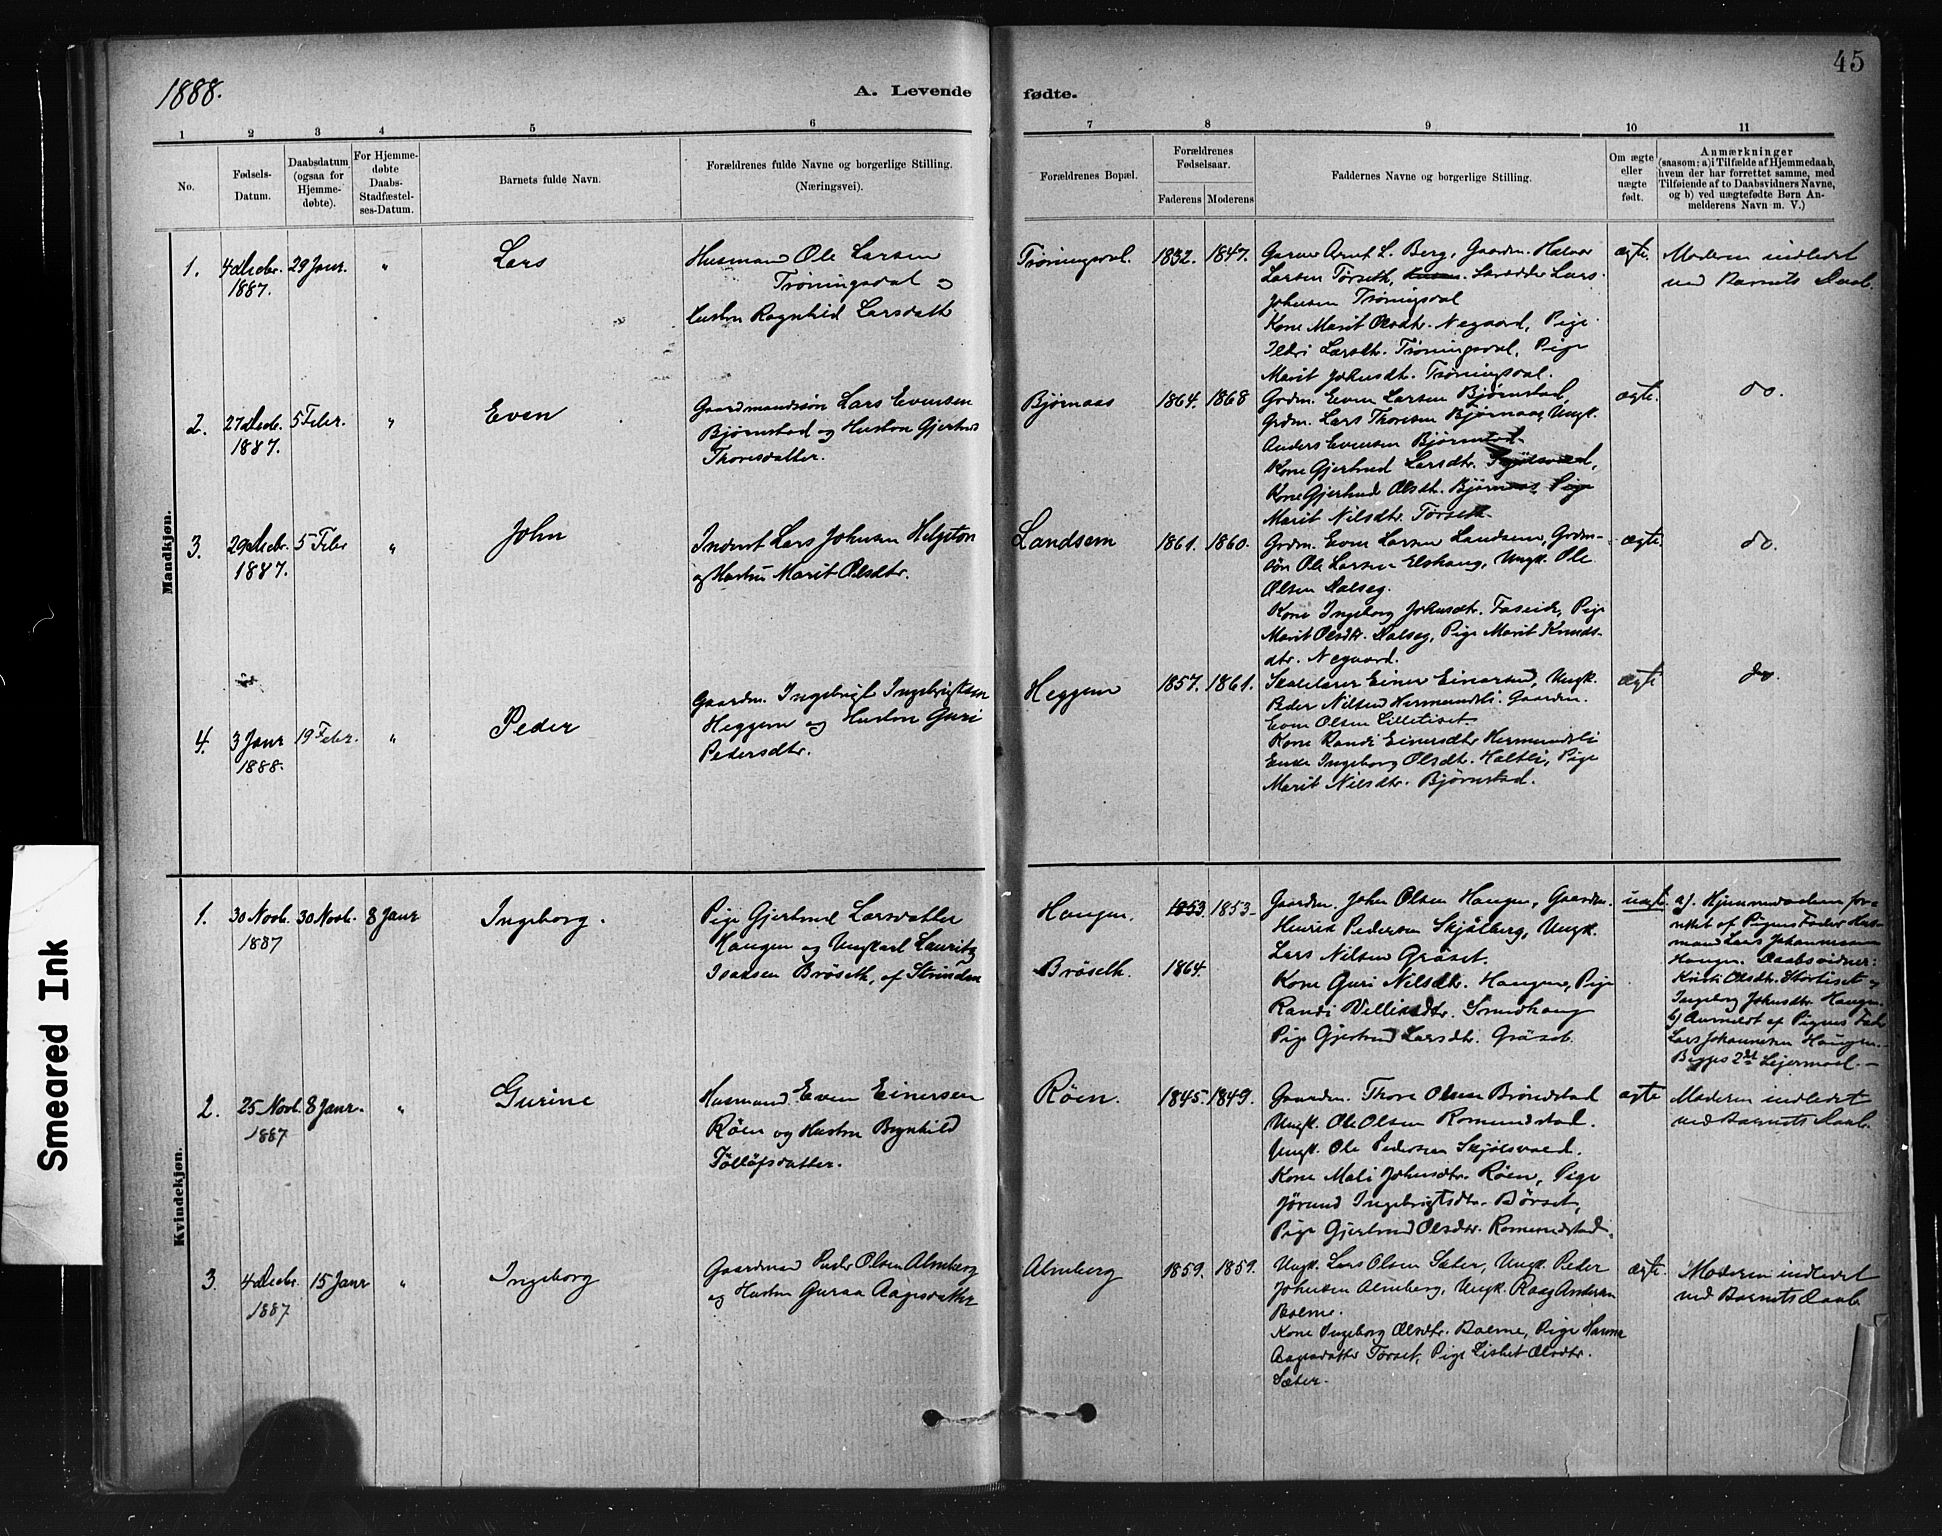 45
1888.
A. Levende fødte.
1 2 3 4 5 6 7 8 9 10 11
No.
Fødsels-
Datum.
Daabsdatum
(ogsaa for
Hjemme-
døbte).
For Hjemme-
døbte
Daabs-
Stadfæstel-
ses-Datum.
Barnets fulde Navn.
Forældrenes fulde Navne og borgerlige Stilling.
(Næringsvei).
Forældrenes Bopæl.
Forældrenes
Fødselsaar.
Faderens Moderens
Faddernes Navne og borgerlige Stilling.
Om ægte
eller
uægte
født.
Anmærkninger
(saasom: a) i Tilfælde af Hjemmedaab,
hvem der har forrettet samme, med
Tilføiende af to Daabsvidners Navne,
og b) ved uægtefødte Børn An-
melderens Navn m. V.)
Mandkjøn.
1.
4 Decbr.
1887.
29 Janr.
"
Lars
Husmand Ole Larsen
Trøningsdal og
Hustru Ragnhild Larsdatter
Trøningsdal.
1832. 1847.
Garver Arnt L. Berg, Gaardm. Halvor
Larsen Tørseth, Skrædder Lars
Johnsen Trøningsdal
Kone Marit Olsdtr. Negaard, Pige
Ildri Larsdtr. Trøningsdal, Pige
Marit Johnsdtr. Trøningsdal.
ægte.
Moderen indledet
ved Barnets Daab.
2.
27 Decb.
1887.
5 Febr.
"
Even
Gaardmandssøn Lars Evensen
Bjørnstad og Hustru Gjertrud
Thoresdatter.
Bjørnaas
1864. 1868
Grdm. Even Larsen Bjørnstad,
Grdm. Lars Thoresen Bjørnaas, Ungk.
Anders Evensen Bjørnstad
Kone Gjertrud Larsdtr. Skjølsvold,
Kone Gjertrud Olsdt. Bjørnaas, Pige
Marit Nilsdtr. Tørseth
ægte.
do.
3.
29 Decbr.
1887.
5 Febr
"
John
Inderst Lars Johnsen Helgeton
og Hustru Marit Olsdtr.
Landsem
1861. 1860.
Grdm. Even Larsen Landsem, Grdm-
søn Ole Larsen Elshaug, Ungk. Ole
Olsen Dalseg.
Kone Ingeborg Johnsdtr. Faseide, Pige
Marit Olsdtr. Dalseg, Pige Marit Knuds-
dtr. Negaard.
ægte.
do.
4.
3 Janr
1888.
19 Febr.
"
Peder
Gaardm. Ingebrigt Ingebrigtsen
Heggem og Hustru Guri
Pedersdtr.
Heggem
1857. 1861.
Skolelærer Einer Einersen, Ungk.
Peder Nilsen Hermundsli. Gaardm.
Even Olsen Lilletiset.
Kone Randi Einersdtr Hermundsli
Enke Ingeborg Olsdt. Holtli, Pige
Marit Nilsdtr. Bjørnstad.
ægte
do.
Kvindekjøn.
1.
30 Novb.
1887
30 Novb.
8 Janr
Ingeborg.
Pige Gjertrud Larsdatter
Haugen og Ungkarl Lauritz
Isaksen Brøseth, af Strinden
Haugen.
Brøseth.
1853 1853
1864.
Gaardm. John Olsen Haugen, Gaardm.
Henrik Pedersen Skjølberg, Ungk.
Lars Nilsen Grøset.
Kone Guri Nilsdtr. Haugen, Pige
Randi Villiksdtr.
Pige Gjertrud Larsdtr. Grøset.
uægte
a). Hjemmedaaben for-
rettet af Pigens Fader Hus-
mand Lars Johannesen
Haugen. Daabsvidner:
Kristi Olsdtr. Stortiset og
Ingeborg Johnsdtr Haugen.
b) Anmeldt af Pigens Fader
Lars Johannesen Haugen.
Begges 2det Leiermaal.
2.
25 Novb.
1887
8 Janr.
"
Gurine
Husmand Even Einersen
Røen og Hustru Brynhild
Tølløfsdatter.
Røen.
1845. 1849.
Gaardm. Thore Olsen Brøndstad
Ungk. Ole Olsen Romundstad.
Ungk. Ole Pedersen Skjølsvold.
Kone Mali Johnsdtr. Røen, Pige
Jørund Ingebrigtsdtr. Børset,
Pige Gjertrud Olsdtr. Romundstad.
ægte
Moderen indledet
ved Barnets Daab.
3.
4 Decbr.
1887
15 Janr
"
Ingeborg
Gaardmd Peder Olsen Almberg
og Hustru Guraa Aagesdatter
Almberg
1859. 1859.
Ungk. Lars Olsen Sæter, Ungk. Peder
Johnsen Almberg, Ungk. Aage Andersen
Bolme.
Kone Ingeborg Olsdtr. Bolme, Pige Hanna
Aagesdatter Tørset, Pige Lisbet Olsdtr.
Sæter.
ægte.
Moderen indledet
ved Barnets Daab
Smeared Ink